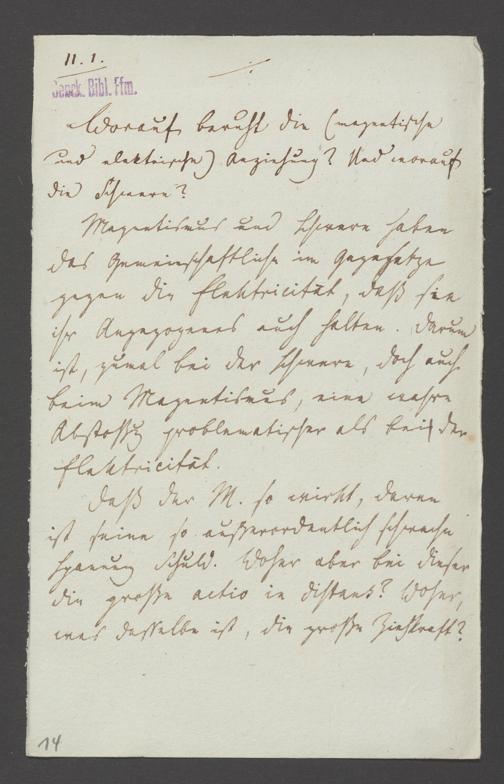 11. 1.
Senck. Bibl. Ffm.
Worauf beruht die (magnetische
und elektrische) Anziehung? Und worauf
die Schwere?
Magnetismus und Schwere haben
das Gemeinschaftliche im Gegensatze
gegen die Elektricität, daß sie
ihr Angezogenes auch halten. Darum
ist, zumal bei der Schwere, doch auch
beim Magnetismus, eine wahre
Abstoßg problematischer als bei der
Elektricität.
Daß der M. so wirkt, daran
ist seine so außerordentlich schwache
Spannung Schuld. Woher aber bei dieser
die große actio in distans? Woher,
was dasselbe ist, die große Ziehkraft?
14